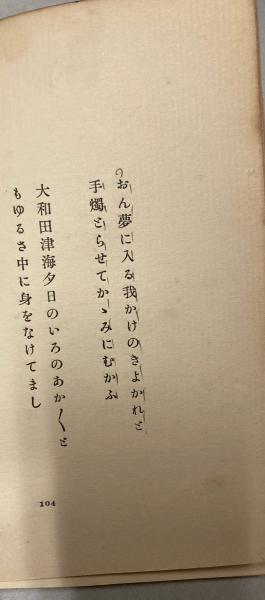 の
おん夢に入る我かけのきよかれと
手燭とらせてかゞみにむかふ
大和田津海夕日のいろのあか〳〵と
もゆるさ中に身をなけてまし
104